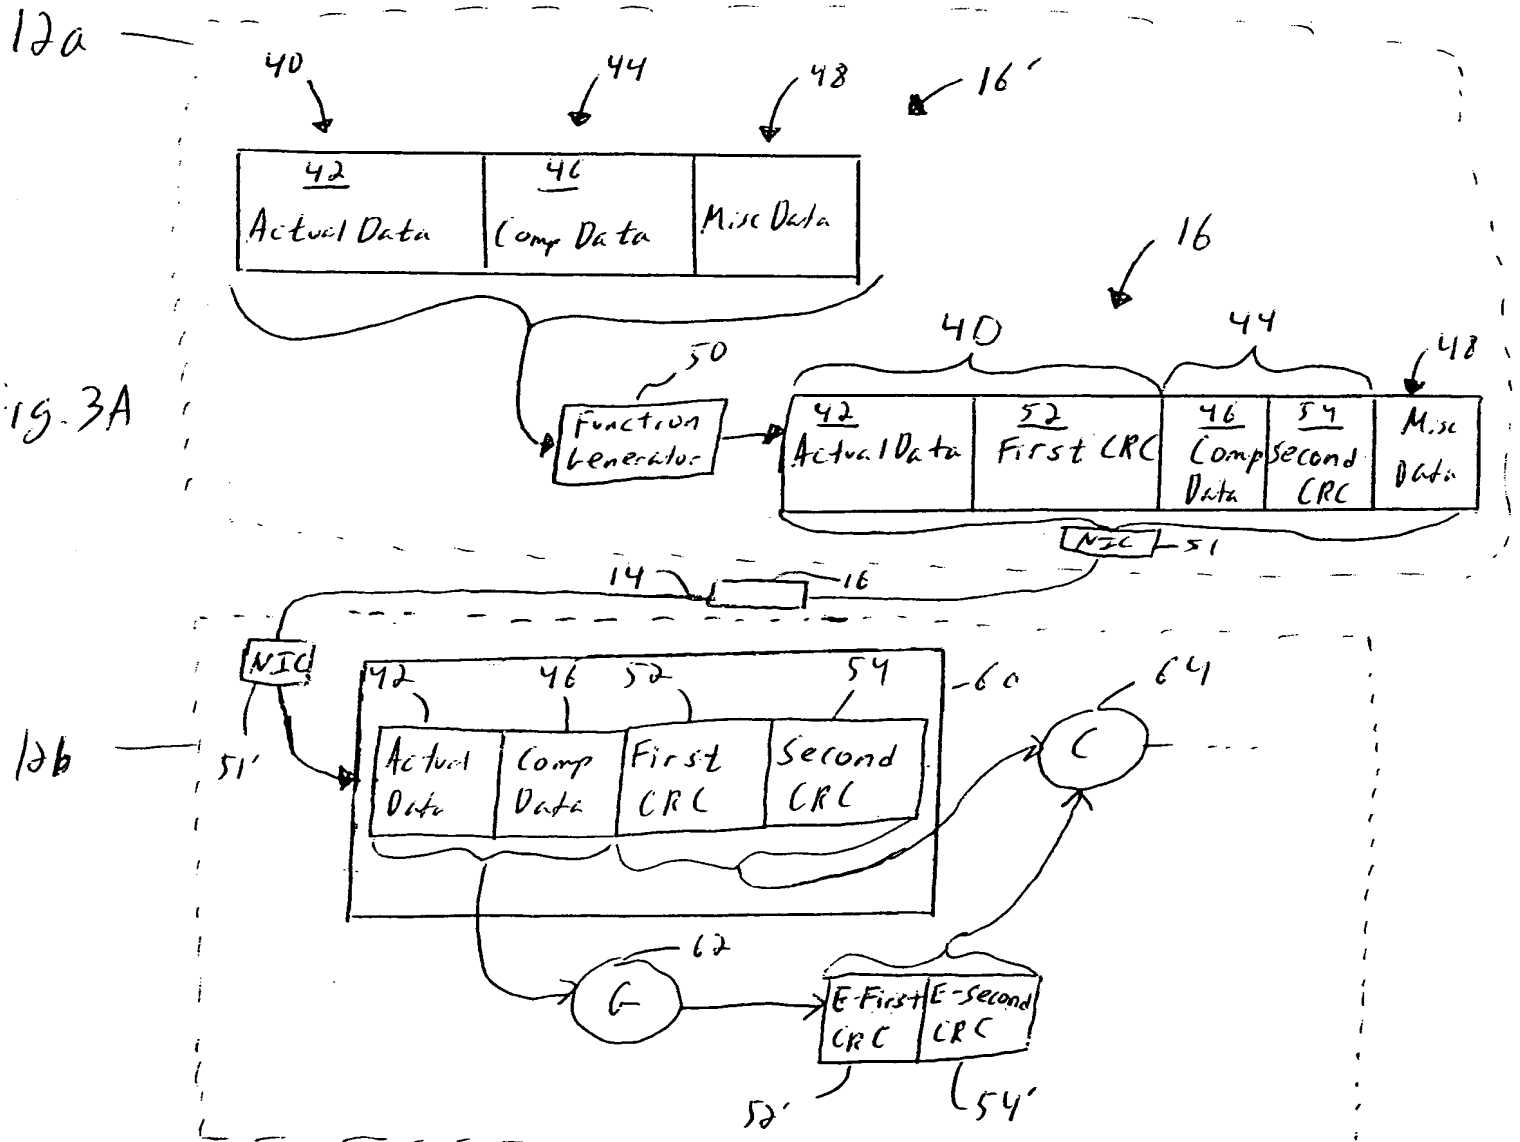 12a
40
44
48
16'
42
46
Actual Data
Comp Data
Misc Data
16
40
44
48
50
Function
Generator
42
52
46
54
Misc
Data
Actual Data
First CRC
Comp
Data
Second
CRC
ig. 3A
NIC
51
14
16
NIC
51'
12b
42
46
52
54
60
64
Actual
Data
Comp
Data
First
CRC
Second
CRC
C
62
G
E-First
CRC
E-Second
CRC
52'
54'